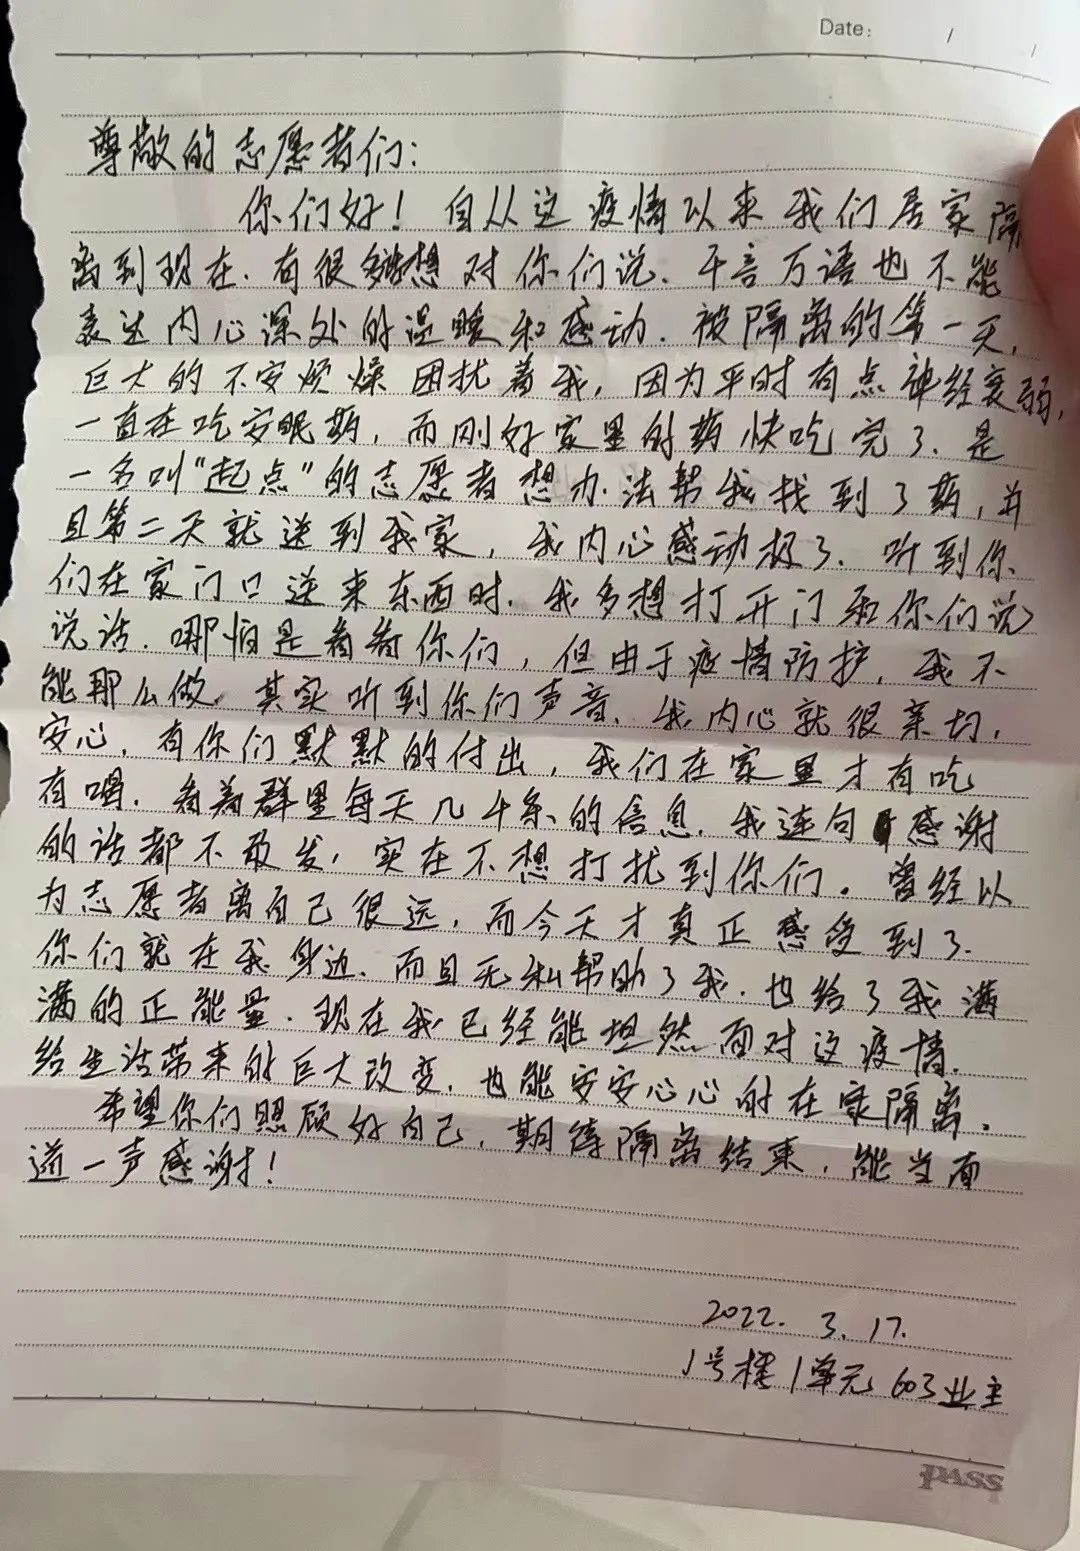 Date: / /
尊敬的志愿者们:
你们好！自从这疫情以来我们居家隔
离到现在.有很多话想对你们说.千言万语也不能
表达内心深处的温暖和感动.被隔离的第一天,
巨大的不安烦燥困扰着我,因为平时有点神经衰弱,
一直在吃安眠药,而刚好家里的药快吃完了.是
一名叫“起点”的志愿者想办法帮我找到了药,并
且第二天就送到我家,我内心感动极了.听到你
们在家门口送来东西时.我多想打开门和你们说
说话.哪怕是看看你们,但由于疫情防护,我不
能那么做.其实听到你们声音、我内心就很亲切,
安心,有你们默默的付出,我们在家里才有吃
有喝.看着群里每天几千条的信息.我连句感谢
的话都不敢发,实在不想打扰到你们。曾经以
为志愿者离自己很远,而今天才真正感受到了.
你们就在我身边.而且无私帮助了我.也给了我满
满的正能量.现在我已经能坦然面对这疫情.
给生活带来的巨大改变.也能安安心心的在家隔离。
希望你们照顾好自己,期待隔离结束,能当面
道一声感谢!
2022.3.17.
1号楼1单元603业主
PASS